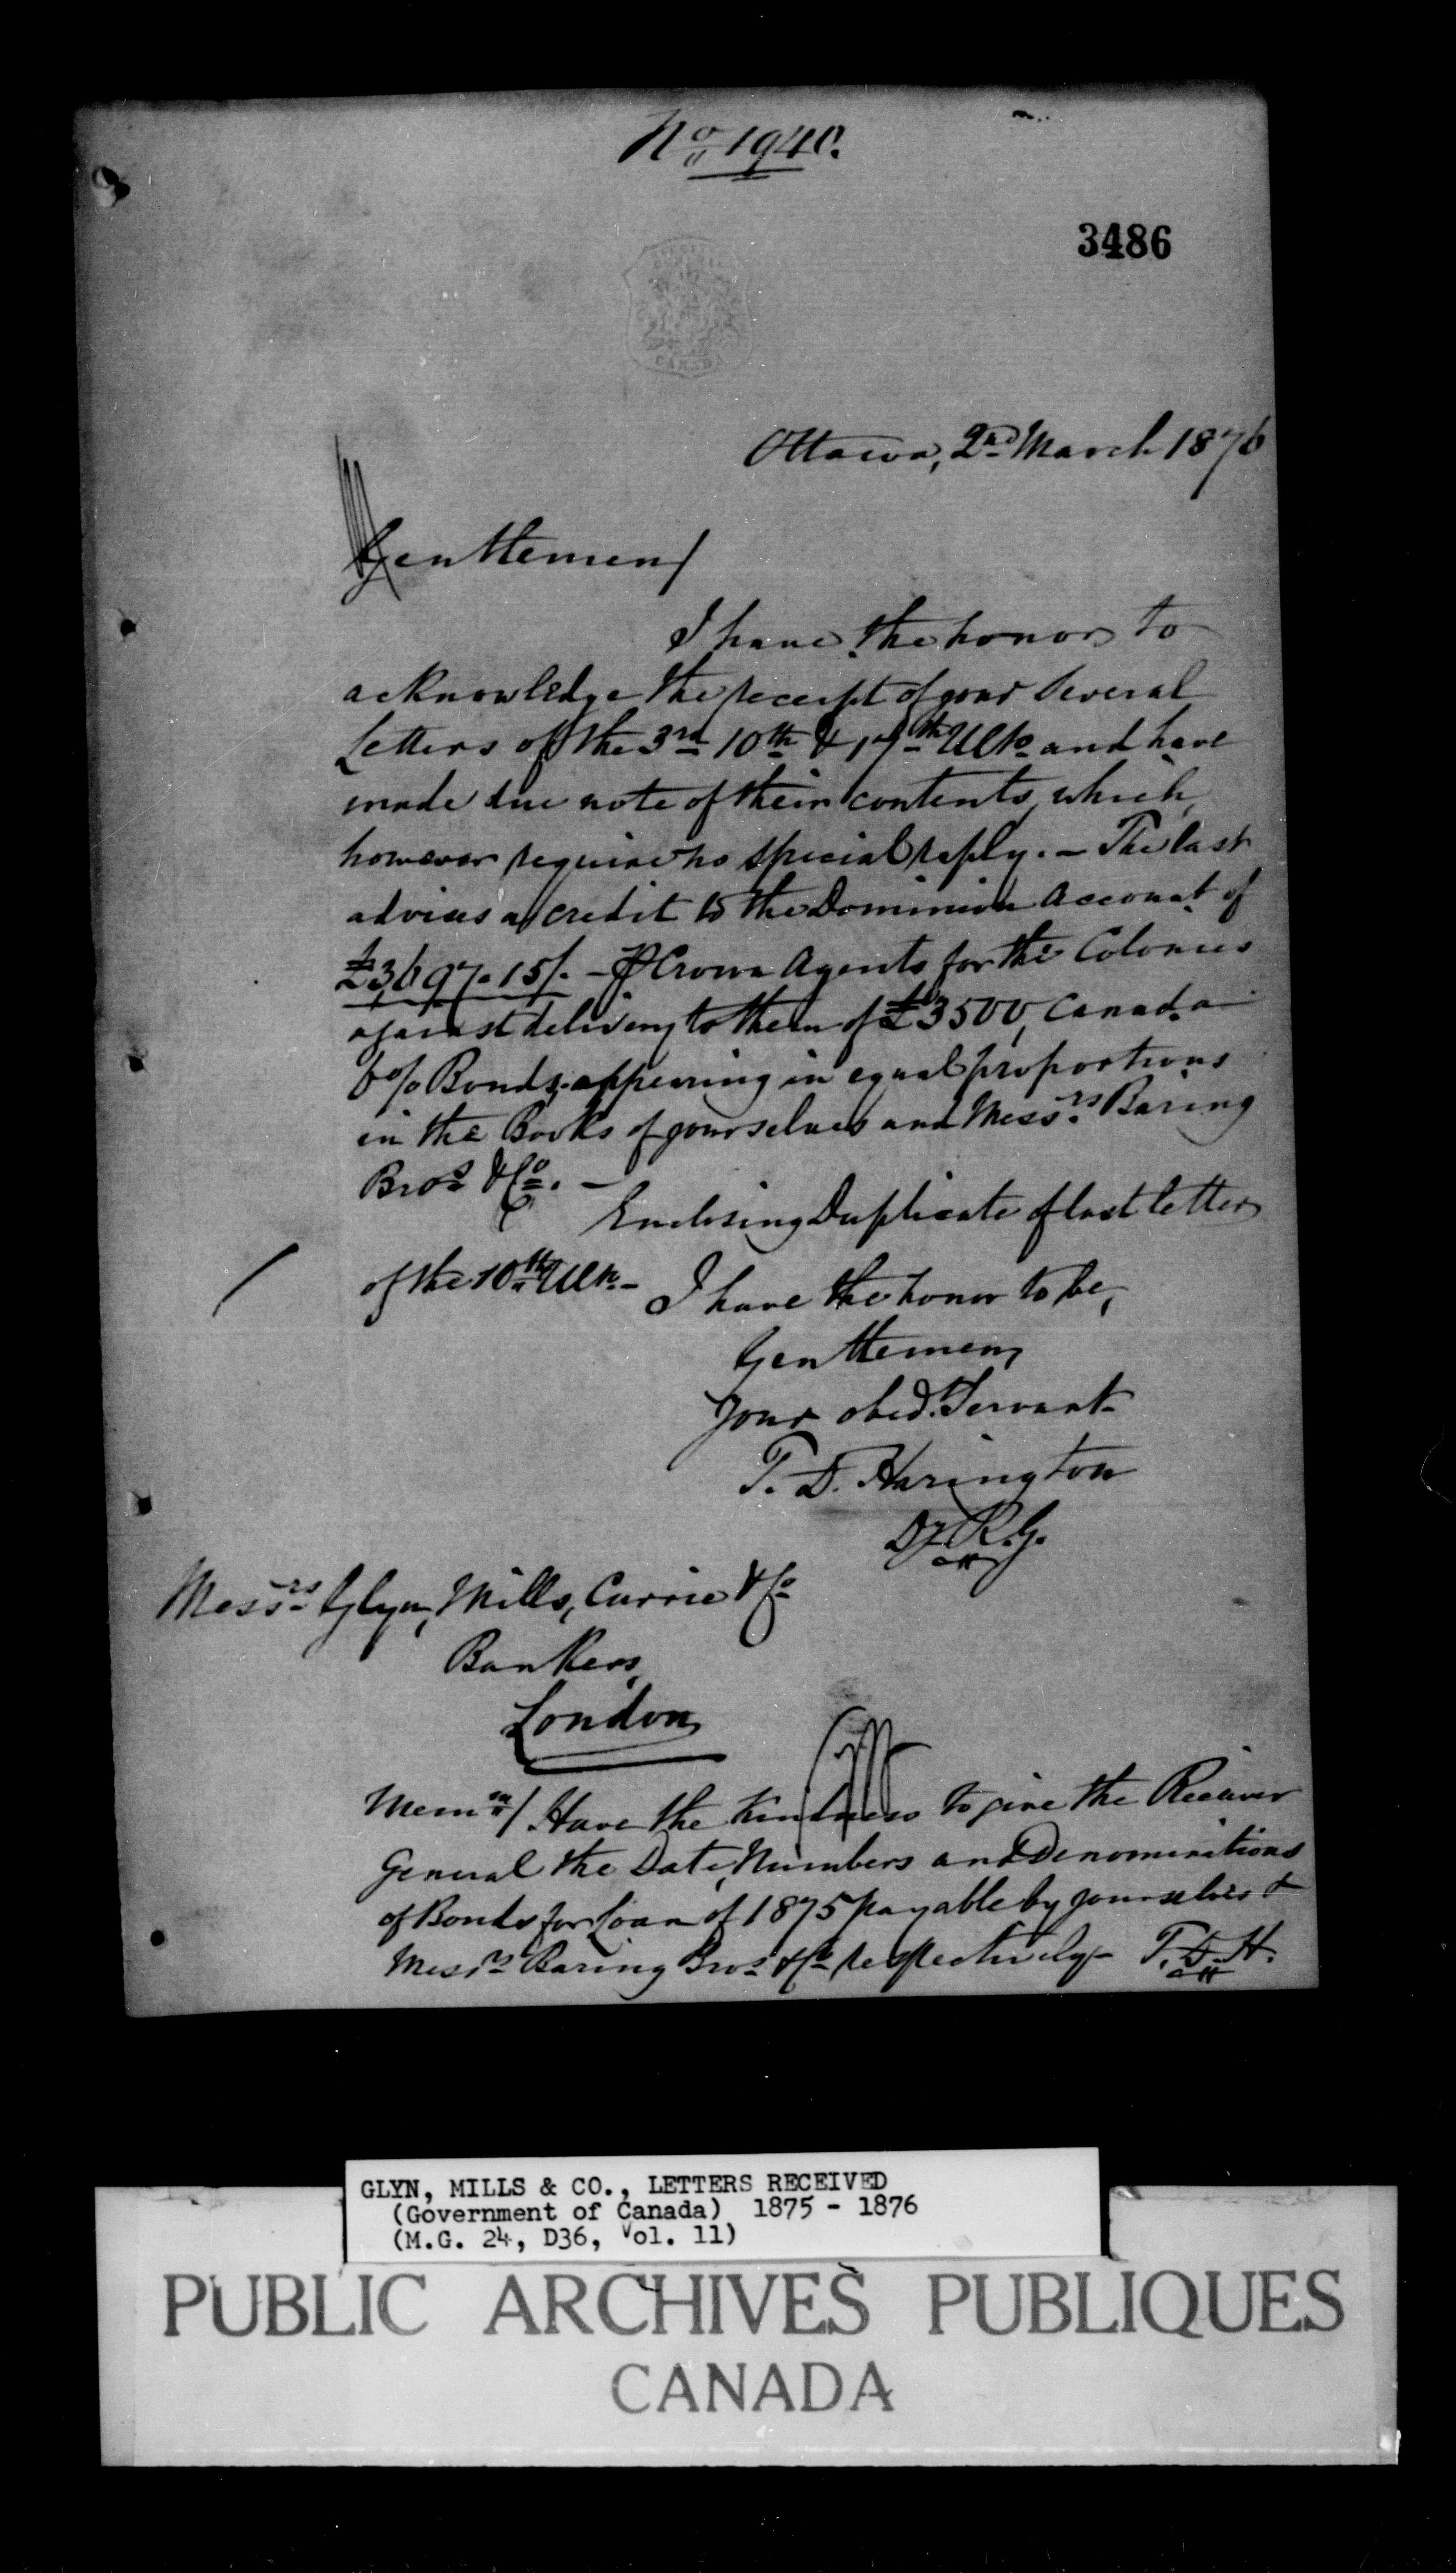 No. 1940.
3486
CANADA
Ottawa, 2nd March 1876
Gentlemen/
I have the honor to
acknowledge the receipt of your several
Letters of the 3rd 10th & 17th Ulto and have
made due note of their contents, which,
however require no special reply. - The last
advises a credit to the Dominion Account of
£3697.15/. - Crown Agents for the Colonies
against delivery to them of £3500, Canada
6% Bonds, appearing in equal proportions
in the Books of yourselves and Messrs. Baring
Bros & Co. -
Enclosing Duplicate of last letter
of the 10th Ulto -
I have the honor to be,
Gentlemen,
Your obed. Servant
T. D. Harington
Dy R.G.
Messrs Glyn, Mills, Currie & Co
Bankers,
London
Memo/ Have the kindness to give the Receiver
General the Date, Numbers and Denominations
of Bonds for Loan of 1875 payable by yourselves &
Messrs Baring Bros & Co respectively - T.D.H.
GLYN, MILLS & CO., LETTERS RECEIVED
(Government of Canada) 1875 - 1876
(M.G. 24, D36, Vol. 11)
PUBLIC ARCHIVES PUBLIQUES
CANADA